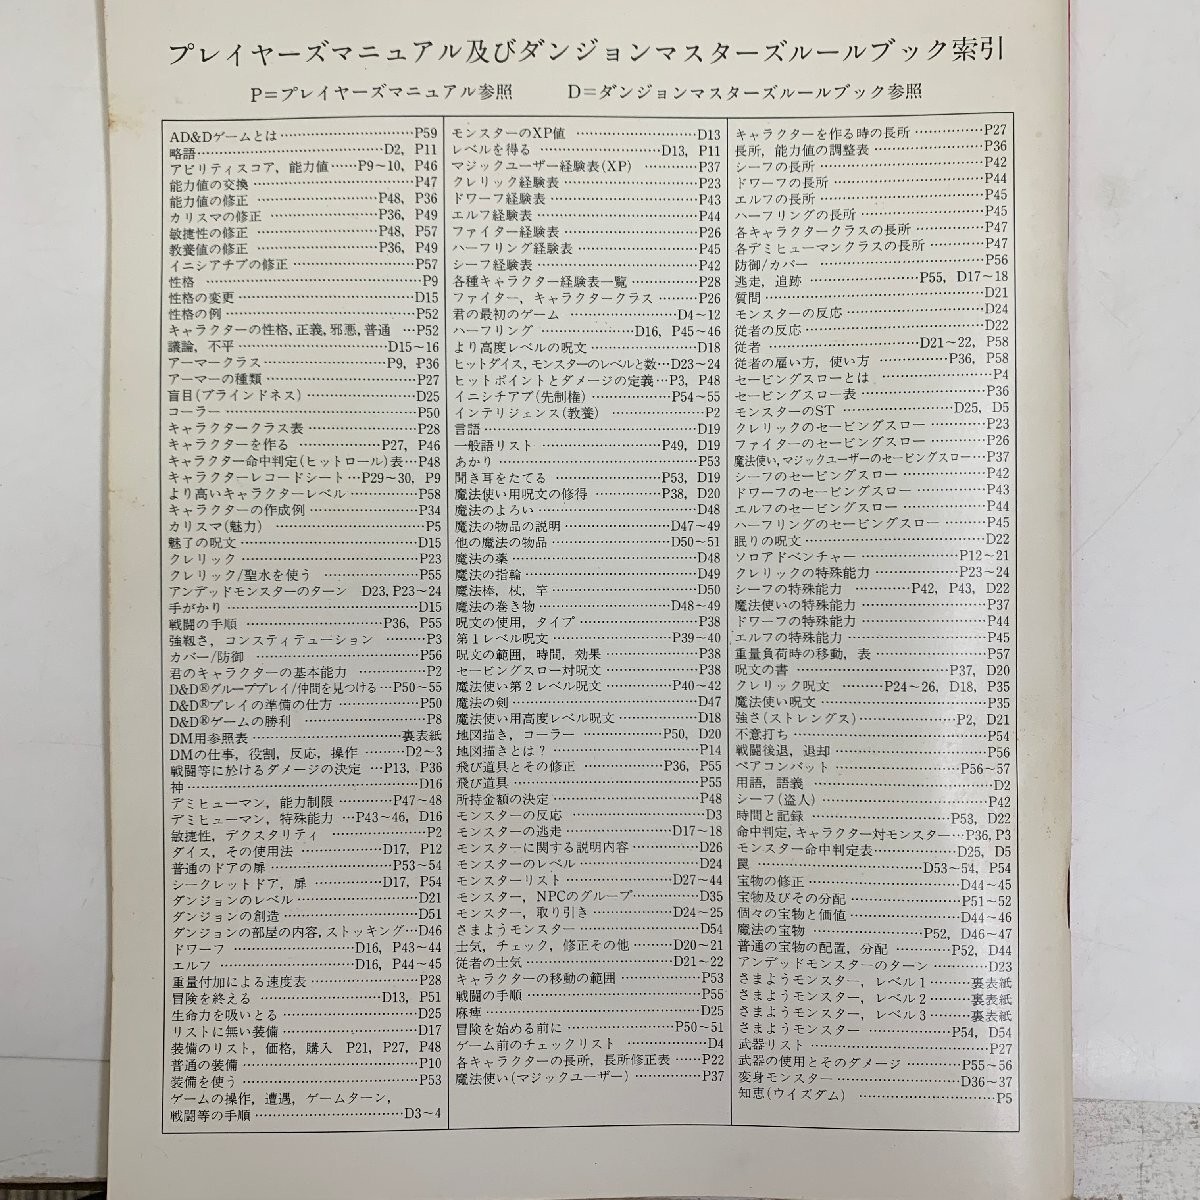 プレイヤーズマニュアル及びダンジョンマスターズルールブック索引
P=プレイヤーズマニュアル参照　　D=ダンジョンマスターズルールブック参照
AD&Dゲームとは……P59
略語……D2, P11
アビリティスコア, 能力値……P9～10, P46
能力値の交換……P47
能力値の修正……P48, P36
カリスマの修正……P36, P49
敏捷性の修正……P48, P57
教養値の修正……P36, P49
イニシアチブの修正……P57
性格……P9
性格の変更……D15
性格の例……P52
キャラクターの性格, 正義, 邪悪, 普通…P52
議論, 不平……D15～16
アーマークラス……P9, P36
アーマーの種類……P27
盲目(ブラインドネス)……D25
コーラー……P50
キャラクタークラス表……P28
キャラクターを作る……P27, P46
キャラクター命中判定(ヒットロール)表…P48
キャラクターレコードシート…P29～30, P9
より高いキャラクターレベル……P58
キャラクターの作成例……P34
カリスマ(魅力)……P5
魅了の呪文……D15
クレリック……P23
クレリック/聖水を使う……P55
アンデッドモンスターのターン　D23, P23～24
手がかり……D15
戦闘の手順……P36, P55
強靱さ, コンスティテューション……P3
カバー/防御……P56
君のキャラクターの基本能力……P2
D&D®グループプレイ/仲間を見つける…P50～55
D&D®プレイの準備の仕方……P50
D&D®ゲームの勝利……P8
DM用参照表……裏表紙
DMの仕事, 役割, 反応, 操作……D2～3
戦闘等に於けるダメージの決定…P13, P36
神……D16
デミヒューマン, 能力制限……P47～48
デミヒューマン, 特殊能力…P43～46, D16
敏捷性, デクスタリティ……P2
ダイス, その使用法……D17, P12
普通のドアの扉……P53～54
シークレットドア, 扉……D17, P54
ダンジョンのレベル……D21
ダンジョンの創造……D51
ダンジョンの部屋の内容, ストッキング…D46
ドワーフ……D16, P43～44
エルフ……D16, P44～45
重量付加による速度表……P28
冒険を終える……D13, P51
生命力を吸いとる……D25
リストに無い装備……D17
装備のリスト, 価格, 購入　P21, P27, P48
普通の装備……P10
装備を使う……P53
ゲームの操作, 遭遇, ゲームターン,
戦闘等の手順……D3～4
モンスターのXP値……D13
レベルを得る……D13, P11
マジックユーザー経験表(XP)……P37
クレリック経験表……P23
ドワーフ経験表……P43
エルフ経験表……P44
ファイター経験表……P26
ハーフリング経験表……P45
シーフ経験表……P42
各種キャラクター経験表一覧……P28
ファイター, キャラクタークラス……P26
君の最初のゲーム……D4～12
ハーフリング……D16, P45～46
より高度レベルの呪文……D18
ヒットダイス, モンスターのレベルと数…D23～24
ヒットポイントとダメージの定義…P3, P48
イニシチアブ(先制権)……P54～55
インテリジェンス(教養)……P2
言語……D19
一般語リスト……P49, D19
あかり……P53
聞き耳をたてる……P53, D19
魔法使い用呪文の修得……P38, D20
魔法のよろい……D48
魔法の物品の説明……D47～49
他の魔法の物品……D50～51
魔法の薬……D48
魔法の指輪……D49
魔法棒, 杖, 竿……D50
魔法の巻き物……D48～49
呪文の使用, タイプ……P38
第1レベル呪文……P39～40
呪文の範囲, 時間, 効果……P38
セービングスロー対呪文……P38
魔法使い第2レベル呪文……P40～42
魔法の剣……D47
魔法使い用高度レベル呪文……D18
地図描き, コーラー……P50, D20
地図描きとは?……P14
飛び道具とその修正……P36, P55
飛び道具……P55
所持金額の決定……P48
モンスターの反応……D3
モンスターの逃走……D17～18
モンスターに関する説明内容……D26
モンスターのレベル……D24
モンスターリスト……D27～44
モンスター, NPCのグループ……D35
モンスター, 取り引き……D24～25
さまようモンスター……D54
士気, チェック, 修正その他……D20～21
従者の士気……D21～22
キャラクターの移動の範囲……P53
戦闘の手順……P55
麻痺……D25
冒険を始める前に……P50～51
ゲーム前のチェックリスト……D4
各キャラクターの長所, 長所修正表……P22
魔法使い(マジックユーザー)……P37
キャラクターを作る時の長所……P27
長所, 能力値の調整表……P36
シーフの長所……P42
ドワーフの長所……P44
エルフの長所……P45
ハーフリングの長所……P45
各キャラクタークラスの長所……P47
各デミヒューマンクラスの長所……P47
防御/カバー……P56
逃走, 追跡……P55, D17～18
質問……D21
モンスターの反応……D24
従者の反応……D22
従者……D21～22, P58
従者の雇い方, 使い方……P36, P58
セービングスローとは……P4
セービングスロー表……P36
モンスターのST……D25, D5
クレリックのセービングスロー……P23
ファイターのセービングスロー……P26
魔法使い, マジックユーザーのセービングスロー…P37
シーフのセービングスロー……P42
ドワーフのセービングスロー……P43
エルフのセービングスロー……P44
ハーフリングのセービングスロー……P45
眠りの呪文……D22
ソロアドベンチャー……P12～21
クレリックの特殊能力……P23～24
シーフの特殊能力……P42, P43, D22
魔法使いの特殊能力……P37
ドワーフの特殊能力……P44
エルフの特殊能力……P45
重量負荷時の移動, 表……P57
呪文の書……P37, D20
クレリック呪文……P24～26, D18, P35
魔法使い呪文……P35
強さ(ストレングス)……P2, D21
不意打ち……P54
戦闘後退, 退却……P56
ペアコンバット……P56～57
用語, 語義……D2
シーフ(盗人)……P42
時間と記録……P53, D22
命中判定, キャラクター対モンスター…P36, P3
モンスター命中判定表……D25, D5
罠……D53～54, P54
宝物の修正……D44～45
宝物及びその分配……P51～52
個々の宝物と価値……D44～46
魔法の宝物……P52, D46～47
普通の宝物の配置, 分配……P52, D44
アンデッドモンスターのターン……D23
さまようモンスター, レベル1……裏表紙
さまようモンスター, レベル2……裏表紙
さまようモンスター, レベル3……裏表紙
さまようモンスター……P54, D54
武器リスト……P27
武器の使用とそのダメージ……P55～56
変身モンスター……D36～37
知恵(ウイズダム)……P5